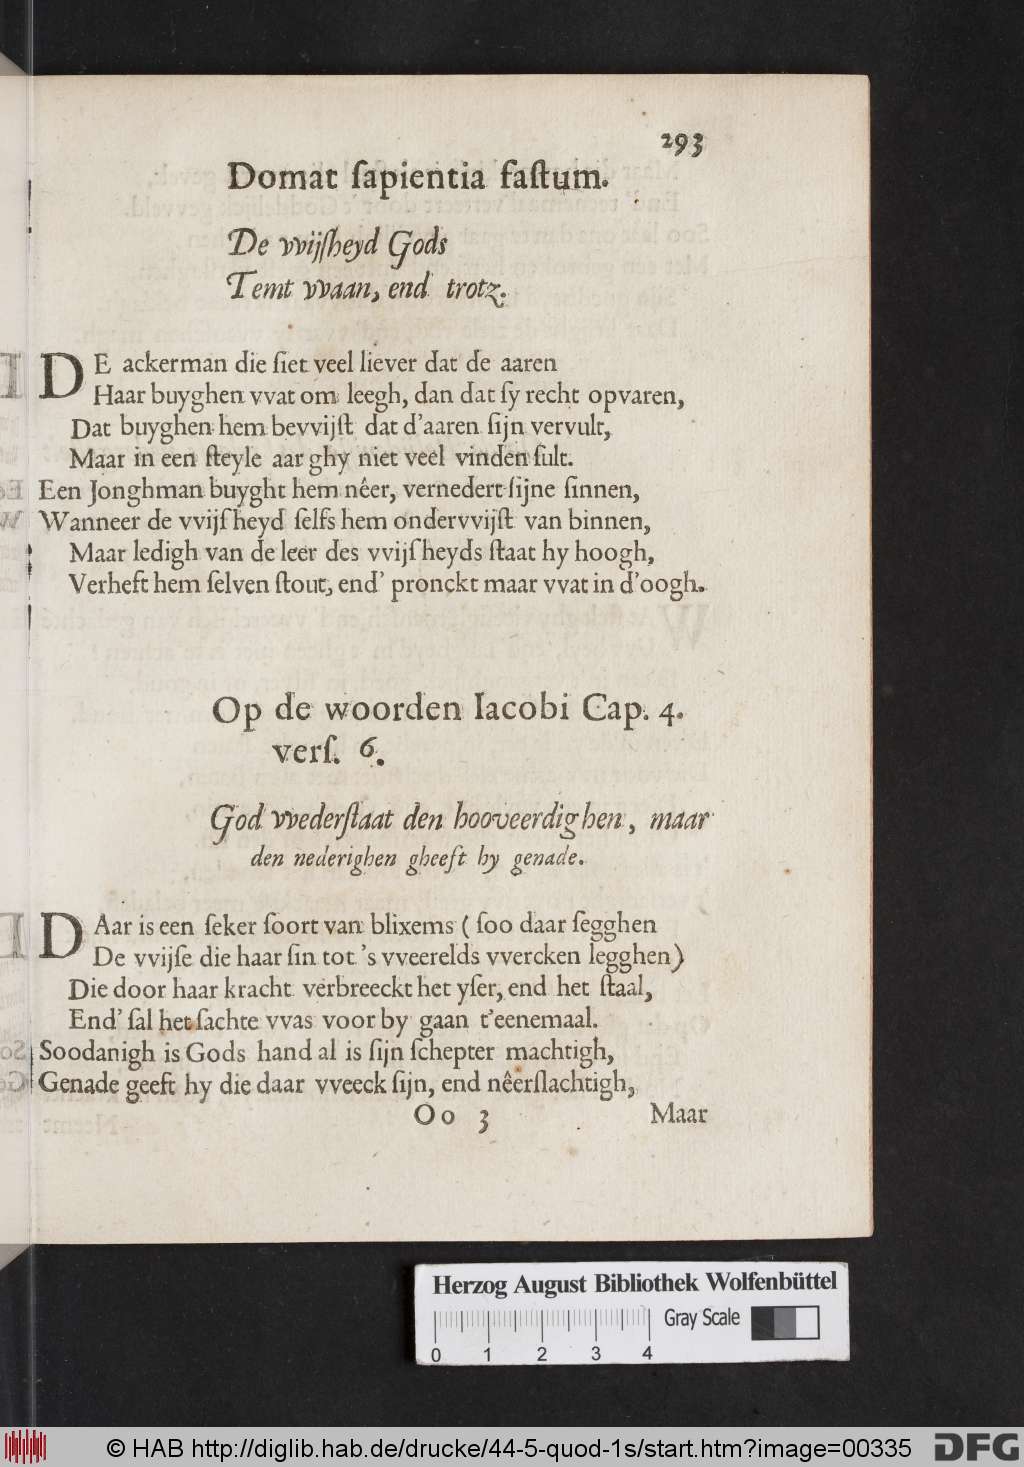 293
Domat ſapientia faſtum.
De vvijſheyd Gods
Temt vvaan, end trotz.
DE ackerman die ſiet veel liever dat de aaren
Haar buyghen vvat om leegh, dan dat ſy recht opvaren,
Dat buyghen hem bevvijſt dat d'aaren ſijn vervult,
Maar in een ſteyle aar ghy niet veel vinden ſult.
Een Jonghman buyght hem nêer, vernedert ſijne ſinnen,
Wanneer de vvijſheyd ſelfs hem ondervvijſt van binnen,
Maar ledigh van de leer des vvijſheyds ſtaat hy hoogh,
Verheft hem ſelven ſtout, end' pronckt maar vvat in d'oogh.
Op de woorden Iacobi Cap. 4.
verſ. 6.
God vvederſtaat den hooveerdighen, maar
den nederighen gheeft hy genade.
DAar is een ſeker ſoort van blixems ( ſoo daar ſegghen
De vvijſe die haar ſin tot 's vveerelds vvercken legghen)
Die door haar kracht verbreeckt het yſer, end het ſtaal,
End' ſal het ſachte vvas voor by gaan t'eenemaal.
Soodanigh is Gods hand al is ſijn ſchepter machtigh,
Genade geeft hy die daar vveeck ſijn, end nêerſlachtigh,
Oo 3 Maar
Herzog August Bibliothek Wolfenbüttel
Gray Scale
0 1 2 3 4
© HAB http://diglib.hab.de/drucke/44-5-quod-1s/start.htm?image=00335 DFG